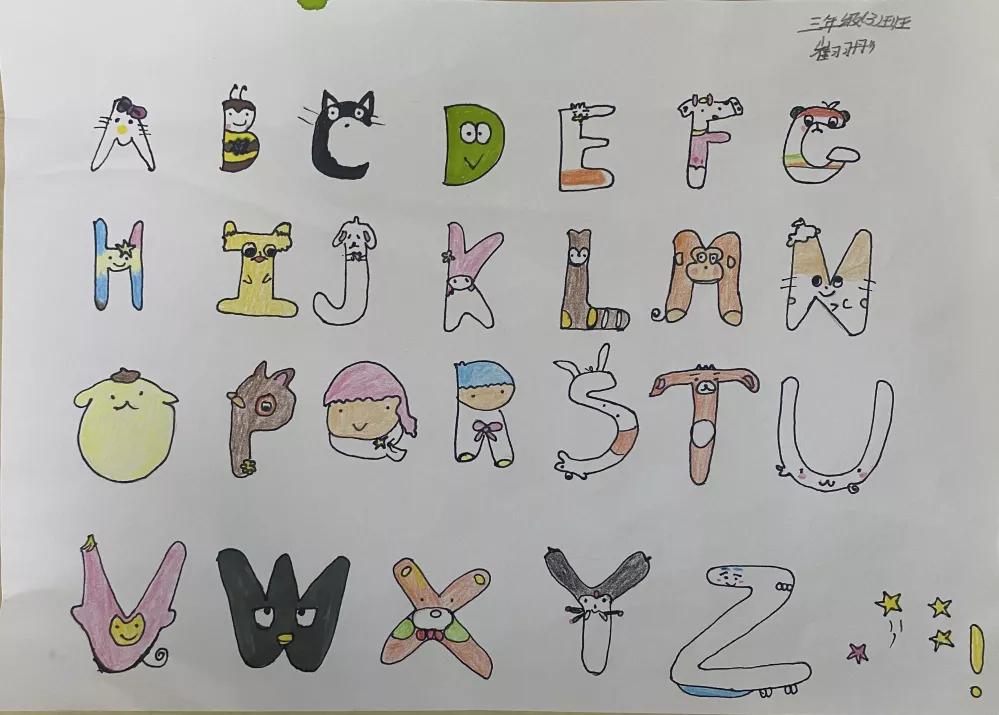 三年级
A B C D E F G
H I J K L M N
O P Q R S T U
V W X Y Z !